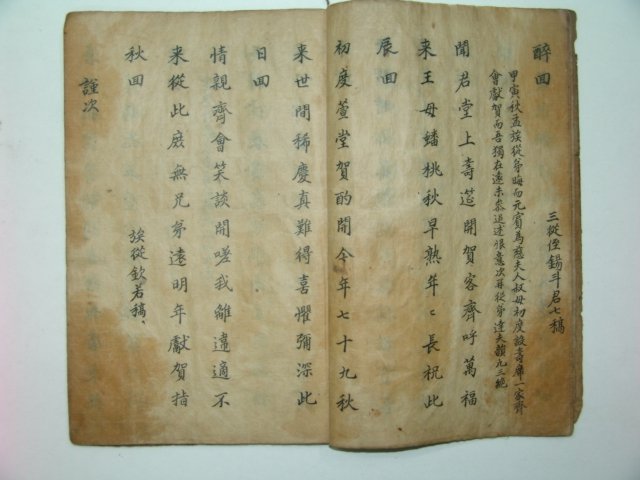 醉回
三從侄錫斗君七稿
甲寅秋孟族從弟晦而元賓為慈夫人叔母初度設壽席一家齊
會獻賀而吾獨在遠未參追述恨意次再從弟達夫韻九三絕
聞君堂上壽筵開賀客齊呼萬福
来王母蟠桃秋早熟年〻長祝此
辰回
初度萱堂賀酌開今年七十九秋
来世間稀慶真難得喜懼彌深此
日回
情親齊會笑談開嗟我離違適不
来從此庭無兄弟遠明年獻賀指
秋回
族從欽若稿
謹次